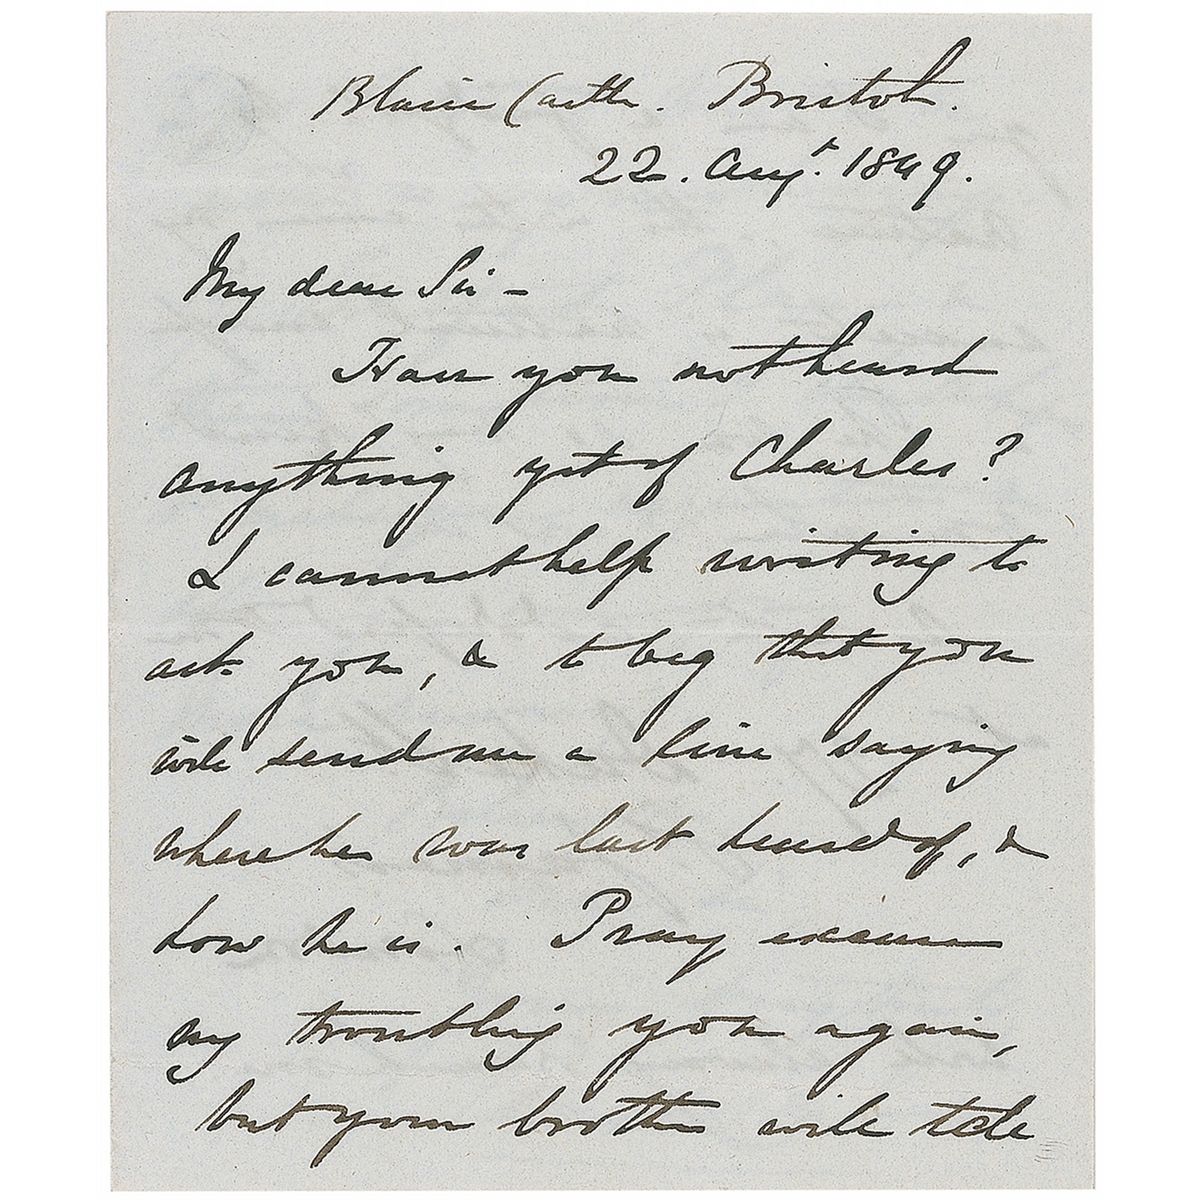 Blaise Castle. Bristol.
22. Augt. 1849.
My dear Sir -
Have you not heard
anything yet of Charles?
I cannot help writing to
ask you, & to beg that you
will send me a line saying
where he was last heard of, &
how he is. Pray excuse
my troubling you again,
but your brother will tell